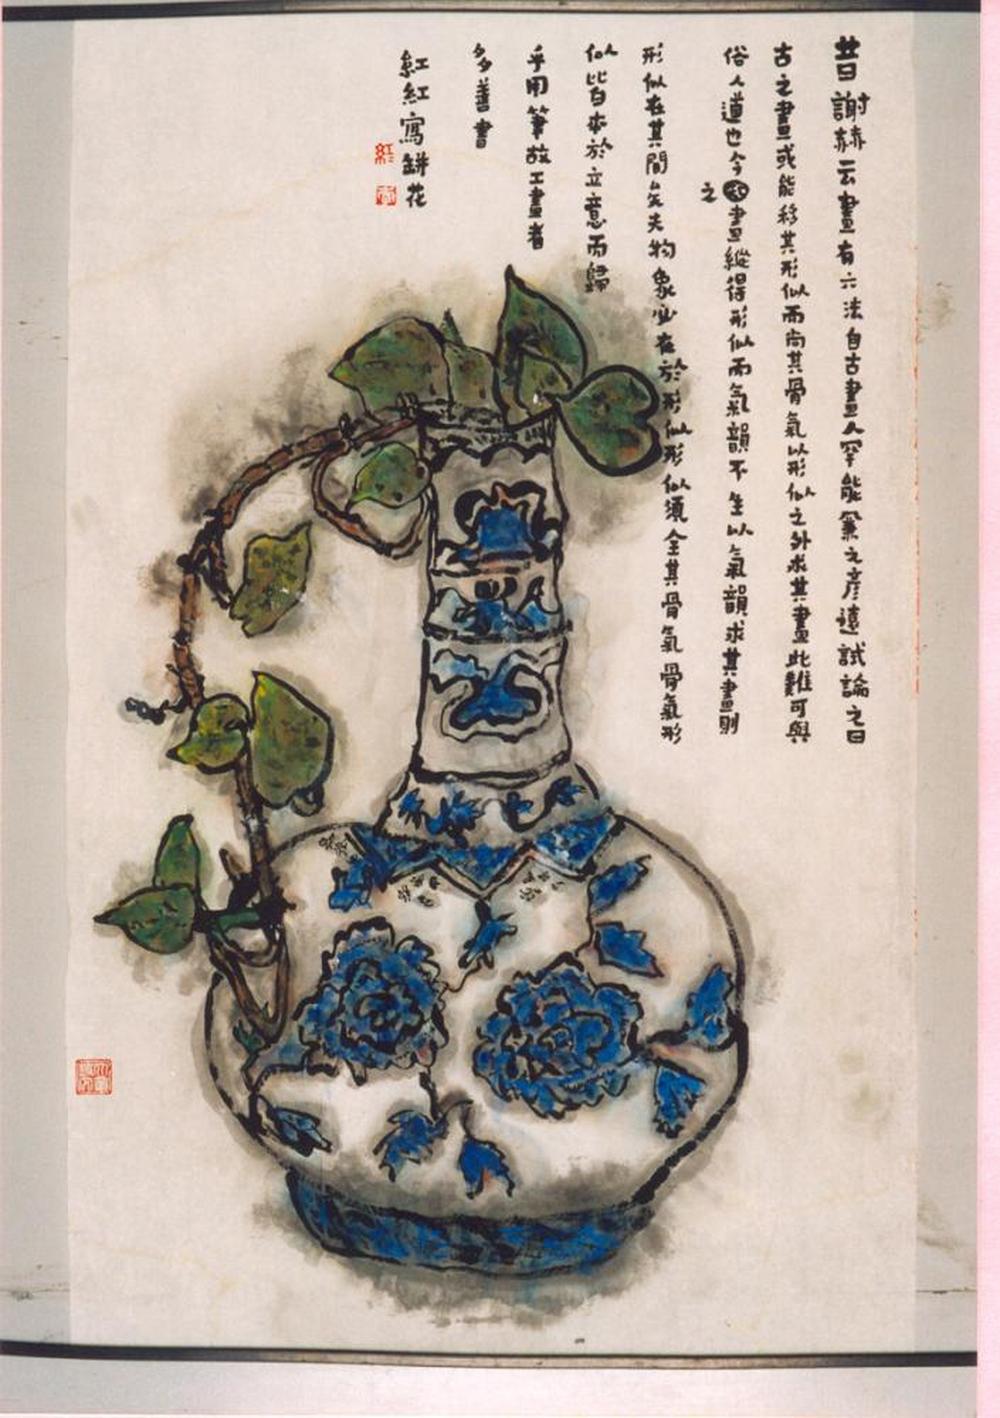 昔謝赫云畫有六法自古畫人罕能兼之彥遠試論之曰
古之畫或能移其形似而尚其骨氣以形似之外求其畫此難可與
俗人道也今之畫縱得形似而氣韻不生以氣韻求其畫則
形似在其間矣夫物象必在於形似形似須全其骨氣骨氣形
似皆本於立意而歸
乎用筆故工畫者
多善書
紅紅寫缾花